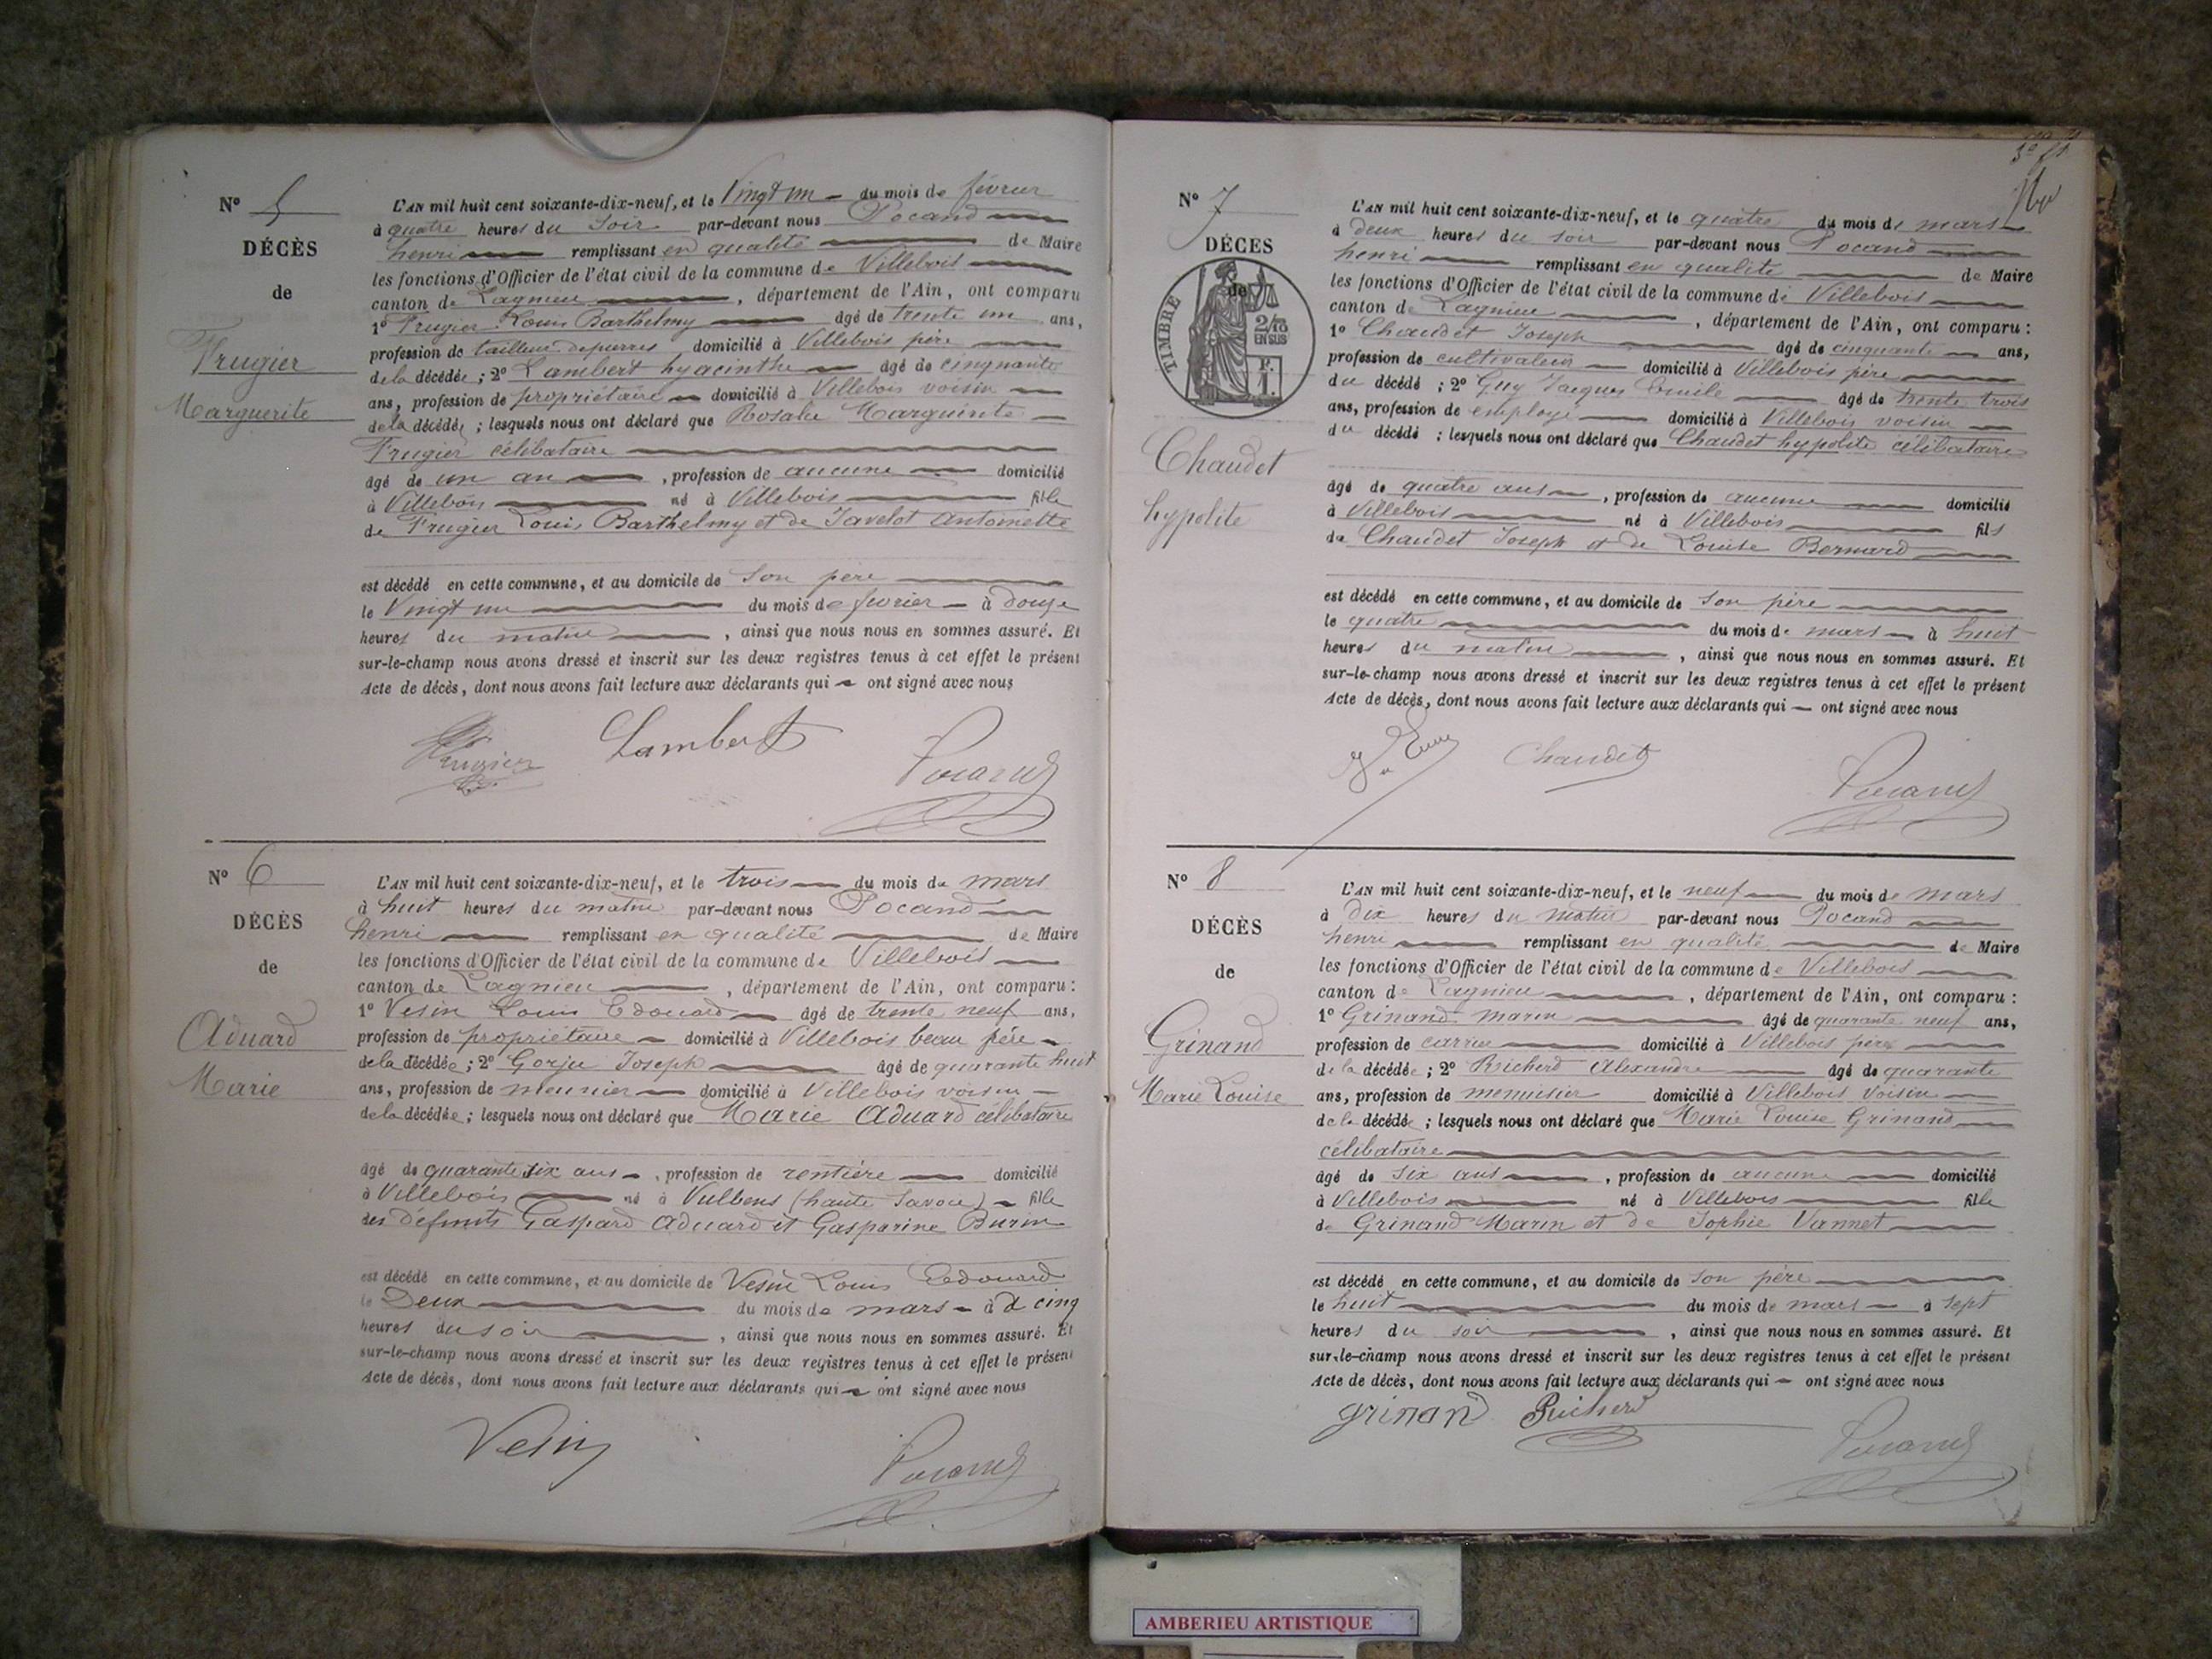 N° 5
DÉCÈS
de
Frugier
Marguerite
L'AN mil huit cent soixante-dix-neuf, et le Vingt un du mois de février
à quatre heures du Soir par-devant nous Pocand
henri remplissant en qualité de Maire
les fonctions d'Officier de l'état civil de la commune de Villebois
canton de Lagnieu, département de l'Ain, ont comparu
1° Frugier Louis Barthelmy âgé de trente un ans,
profession de tailleur de pierres domicilié à Villebois père
de la décédée ; 2° Lambert hyacinthe âgé de cinquante
ans, profession de propriétaire domicilié à Villebois voisin
de la décédée ; lesquels nous ont déclaré que Rosalie Marguerite
Frugier célibataire
âgé de un an, profession de aucune domicilié
à Villebois né à Villebois fille
de Frugier Louis Barthelmy et de Javelot Antoinette
est décédé en cette commune, et au domicile de Son père
le Vingt un du mois de fevrier à douze
heures du matin, ainsi que nous nous en sommes assuré. Et
sur-le-champ nous avons dressé et inscrit sur les deux registres tenus à cet effet le présent
Acte de décès, dont nous avons fait lecture aux déclarants qui ont signé avec nous
Frugier Lambert Pocand
N° 6
DÉCÈS
de
Aduard
Marie
L'AN mil huit cent soixante-dix-neuf, et le trois du mois de mars
à huit heures du matin par-devant nous Pocand
henri remplissant en qualité de Maire
les fonctions d'Officier de l'état civil de la commune de Villebois
canton de Lagnieu, département de l'Ain, ont comparu :
1° Vesin Louis Edouard âgé de trente neuf ans,
profession de propriétaire domicilié à Villebois beau père
de la décédée ; 2° Gorju Joseph âgé de quarante huit
ans, profession de meunier domicilié à Villebois voisin
de la décédée ; lesquels nous ont déclaré que Marie Aduard célibataire
âgé de quarante six ans, profession de rentière domicilié
à Villebois né à Vulbens (haute Savoie) fille
des défunts Gaspard Aduard et Gasparine Burin
est décédé en cette commune, et au domicile de Vesin Louis Edouard
le Deux du mois de mars à cinq
heures du soir, ainsi que nous nous en sommes assuré. Et
sur-le-champ nous avons dressé et inscrit sur les deux registres tenus à cet effet le présent
Acte de décès, dont nous avons fait lecture aux déclarants qui ont signé avec nous
Vesin Pocand
N° 7
DÉCÈS
de
TIMBRE
2/10
EN SUS
Chaudet
hypolite
L'AN mil huit cent soixante-dix-neuf, et le quatre du mois de mars
à deux heures du soir par-devant nous Pocand
henri remplissant en qualité de Maire
les fonctions d'Officier de l'état civil de la commune de Villebois
canton de Lagnieu, département de l'Ain, ont comparu :
1° Chaudet Joseph âgé de cinquante ans,
profession de cultivateur domicilié à Villebois père
du décédé ; 2° Guy Jacques Emile âgé de trente trois
ans, profession de employé domicilié à Villebois voisin
du décédé ; lesquels nous ont déclaré que Chaudet hypolite célibataire
âgé de quatre ans, profession de aucune domicilié
à Villebois né à Villebois fils
de Chaudet Joseph et de Louise Bernard
est décédé en cette commune, et au domicile de Son père
le quatre du mois de mars à huit
heures du matin, ainsi que nous nous en sommes assuré. Et
sur-le-champ nous avons dressé et inscrit sur les deux registres tenus à cet effet le présent
Acte de décès, dont nous avons fait lecture aux déclarants qui ont signé avec nous
Chaudet Pocand
N° 8
DÉCÈS
de
Grinand
Marie Louise
L'AN mil huit cent soixante-dix-neuf, et le neuf du mois de mars
à dix heures du matin par-devant nous Pocand
henri remplissant en qualité de Maire
les fonctions d'Officier de l'état civil de la commune de Villebois
canton de Lagnieu, département de l'Ain, ont comparu :
1° Grinand Marin âgé de quarante neuf ans,
profession de carrier domicilié à Villebois père
de la décédée ; 2° Richerd Alexandre âgé de quarante
ans, profession de menuisier domicilié à Villebois Voisin
de la décédée ; lesquels nous ont déclaré que Marie Louise Grinand
célibataire
âgé de six ans, profession de aucune domicilié
à Villebois né à Villebois fille
de Grinand Marin et de Sophie Vannet
est décédé en cette commune, et au domicile de son père
le huit du mois de mars à sept
heures du soir, ainsi que nous nous en sommes assuré. Et
sur-le-champ nous avons dressé et inscrit sur les deux registres tenus à cet effet le présent
Acte de décès, dont nous avons fait lecture aux déclarants qui ont signé avec nous
grinand Richerd Pocand
AMBERIEU ARTISTIQUE